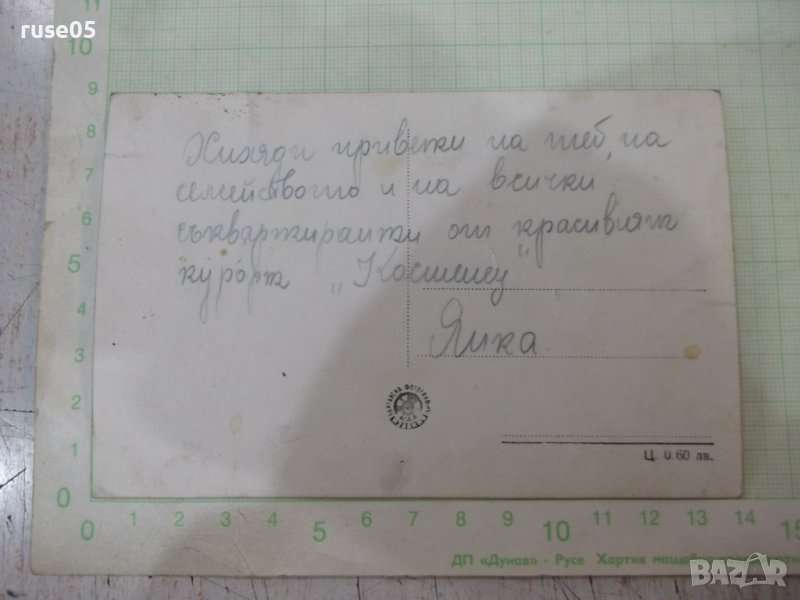 ruse05
11
10
9
8
7
6
5
4
3
2
1
0
Хиляди приветки на теб, на
семейството и на всички
съквартирантки от красивият
курорт „Костенец"
Янка
Ц. 0.60 лв.
0 1 2 3 4 5 6 7 8 9 10 11 12 13 14 15
ДП «Дунав» - Русе Хартия
BAZAR